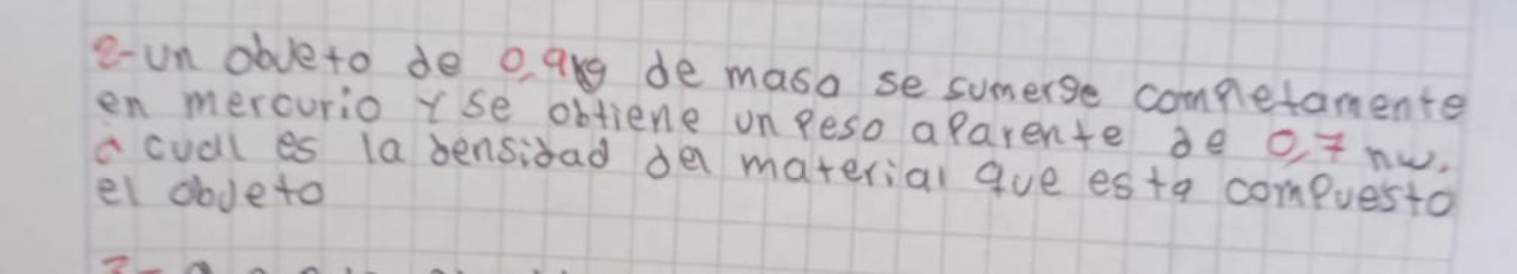 2-un obveto de 0,9kg de masa se sumerge completamente
en mercurio Y se obtiene un Peso aParente de 0,7 nw.
a cual es la densidad del material que esta comPuesto
el obdeto